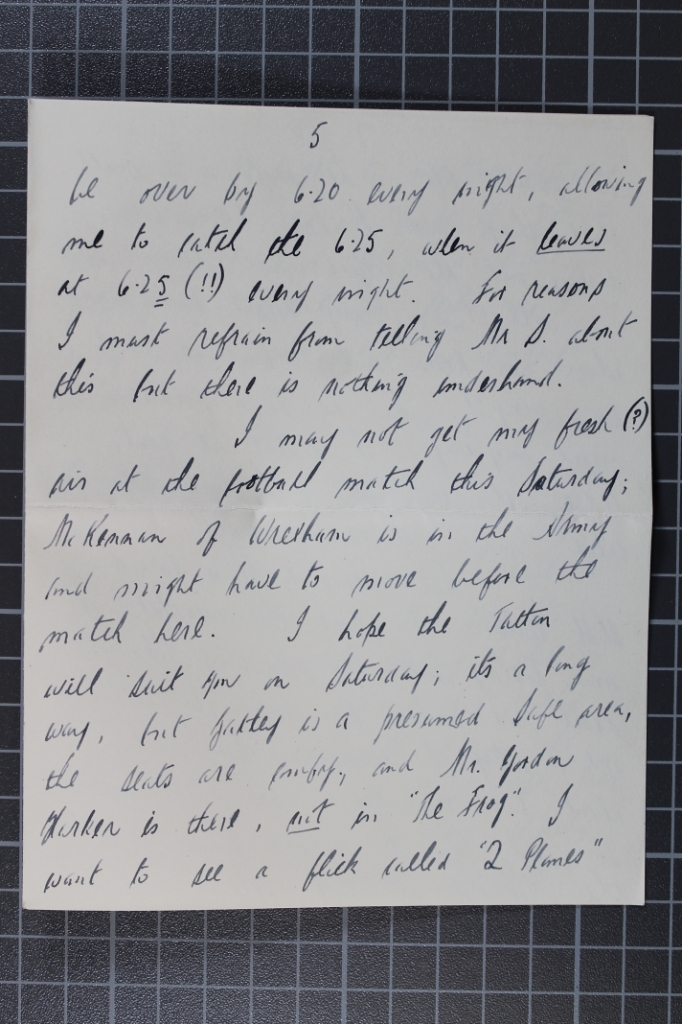 5
be over by 6.20 every night, allowing
me to catch the 6.25, when it leaves
at 6.25 (!!) every night. For reasons
I must refrain from telling Mr S. about
this but there is nothing underhand.
I may not get my fresh (?)
air at the football match this Saturday;
of Wrexham is in the Army
and might have to move before the
match here. I hope the Tatton
will suit you on Saturday; its a long
way, but Gatley is a presumed safe area,
the seats are comfy, and Mr. Gordon
Harker is there, not in "The Frog". I
want to see a flick called "2 Planes"